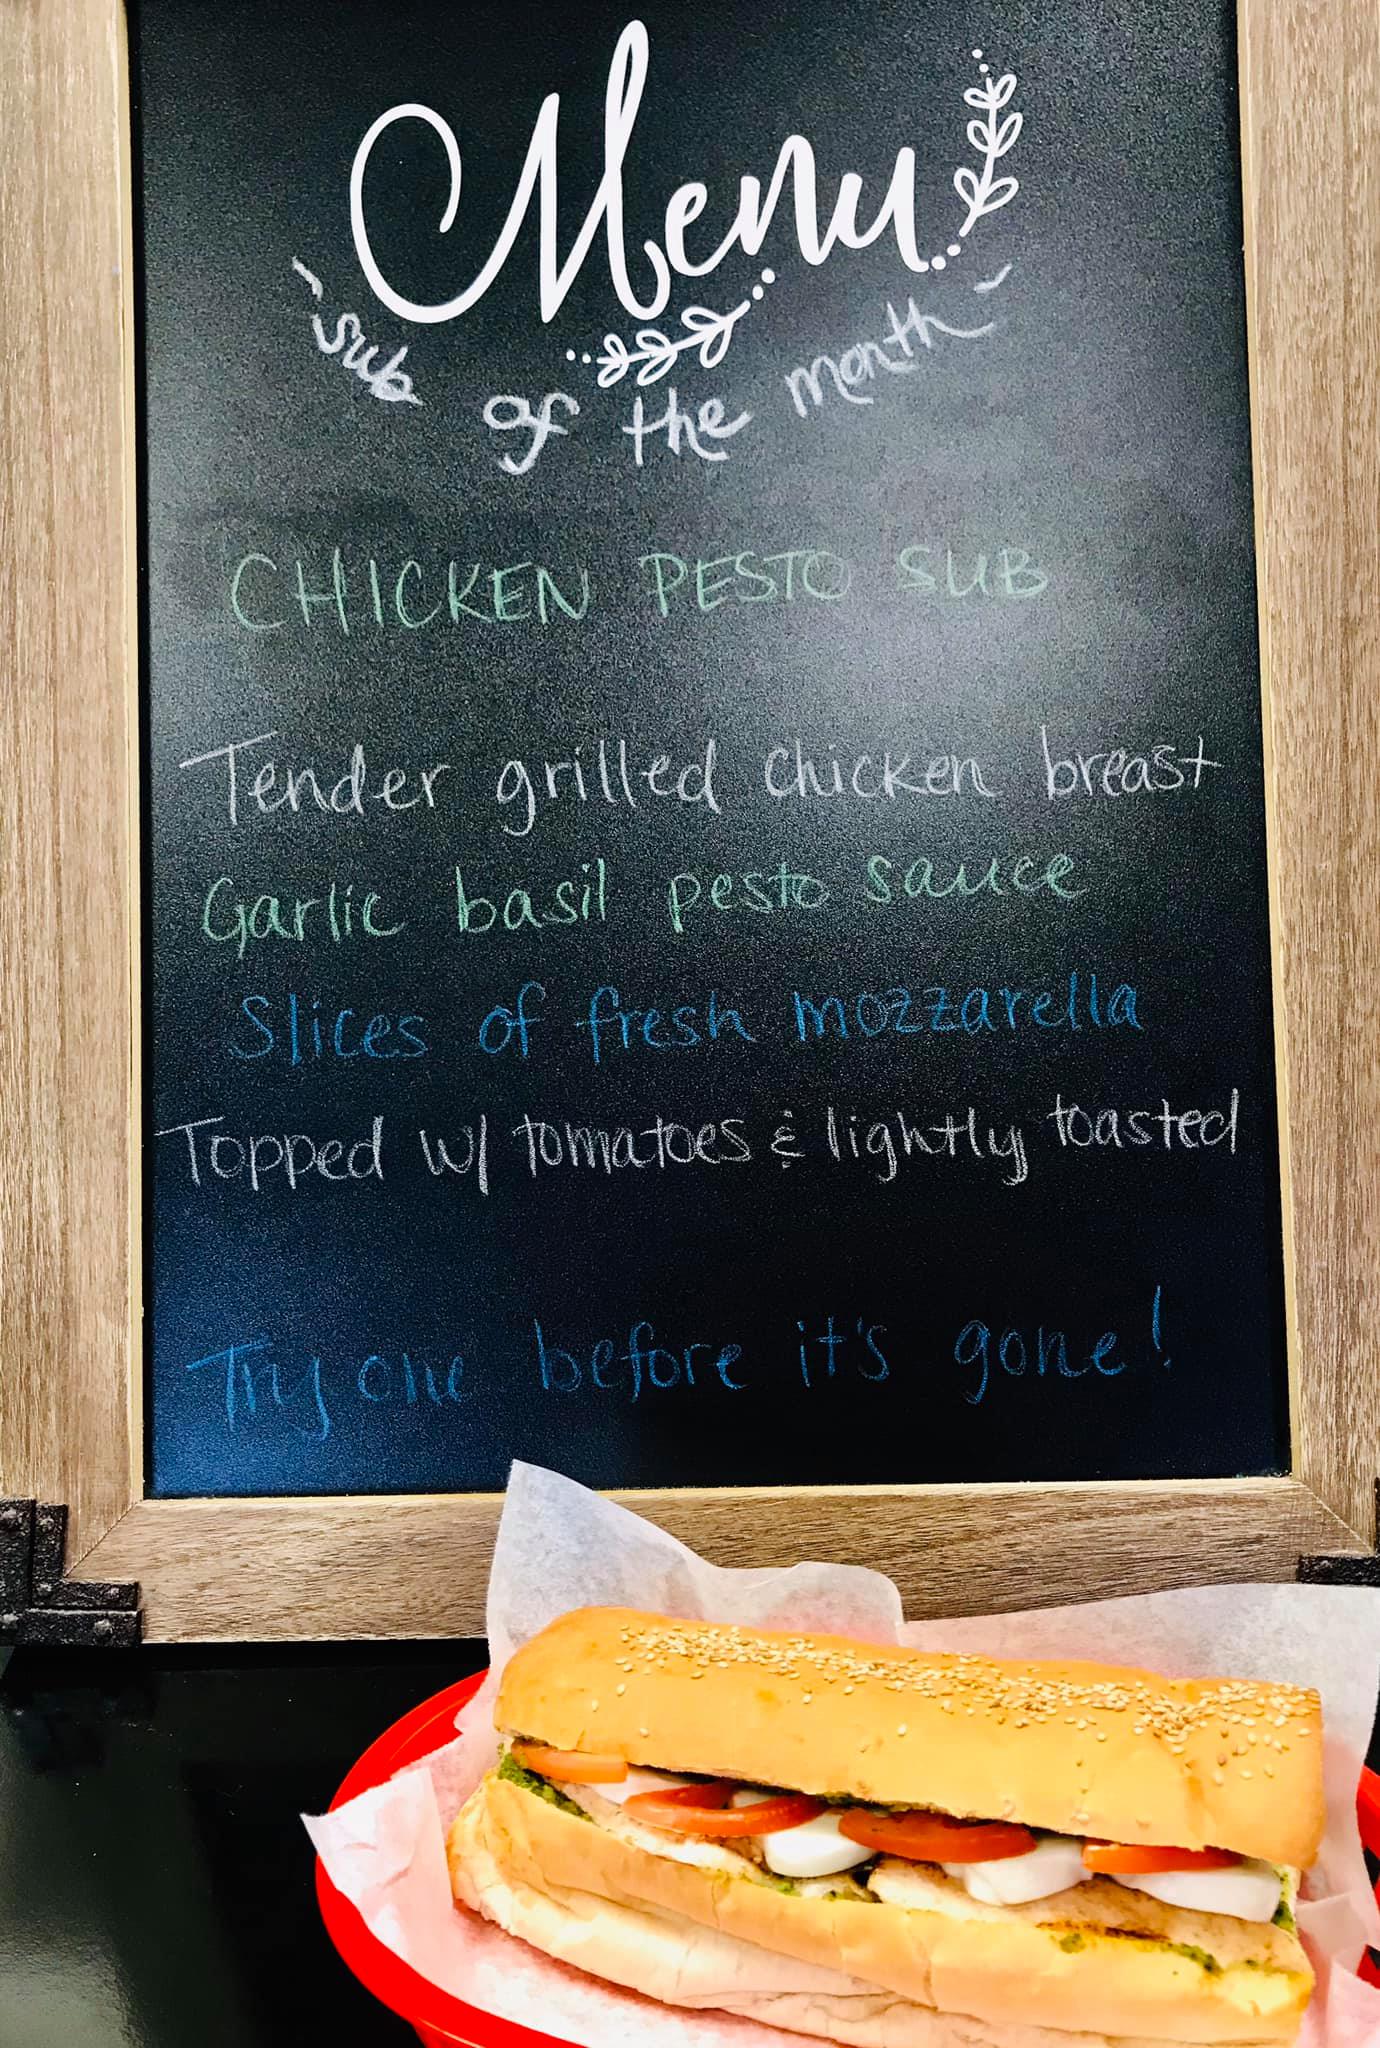 Menu
~ sub of the month ~
CHICKEN PESTO SUB
Tender grilled chicken breast
Garlic basil pesto sauce
Slices of fresh mozzarella
Topped w/ tomatoes & lightly toasted
Try one before it's gone!